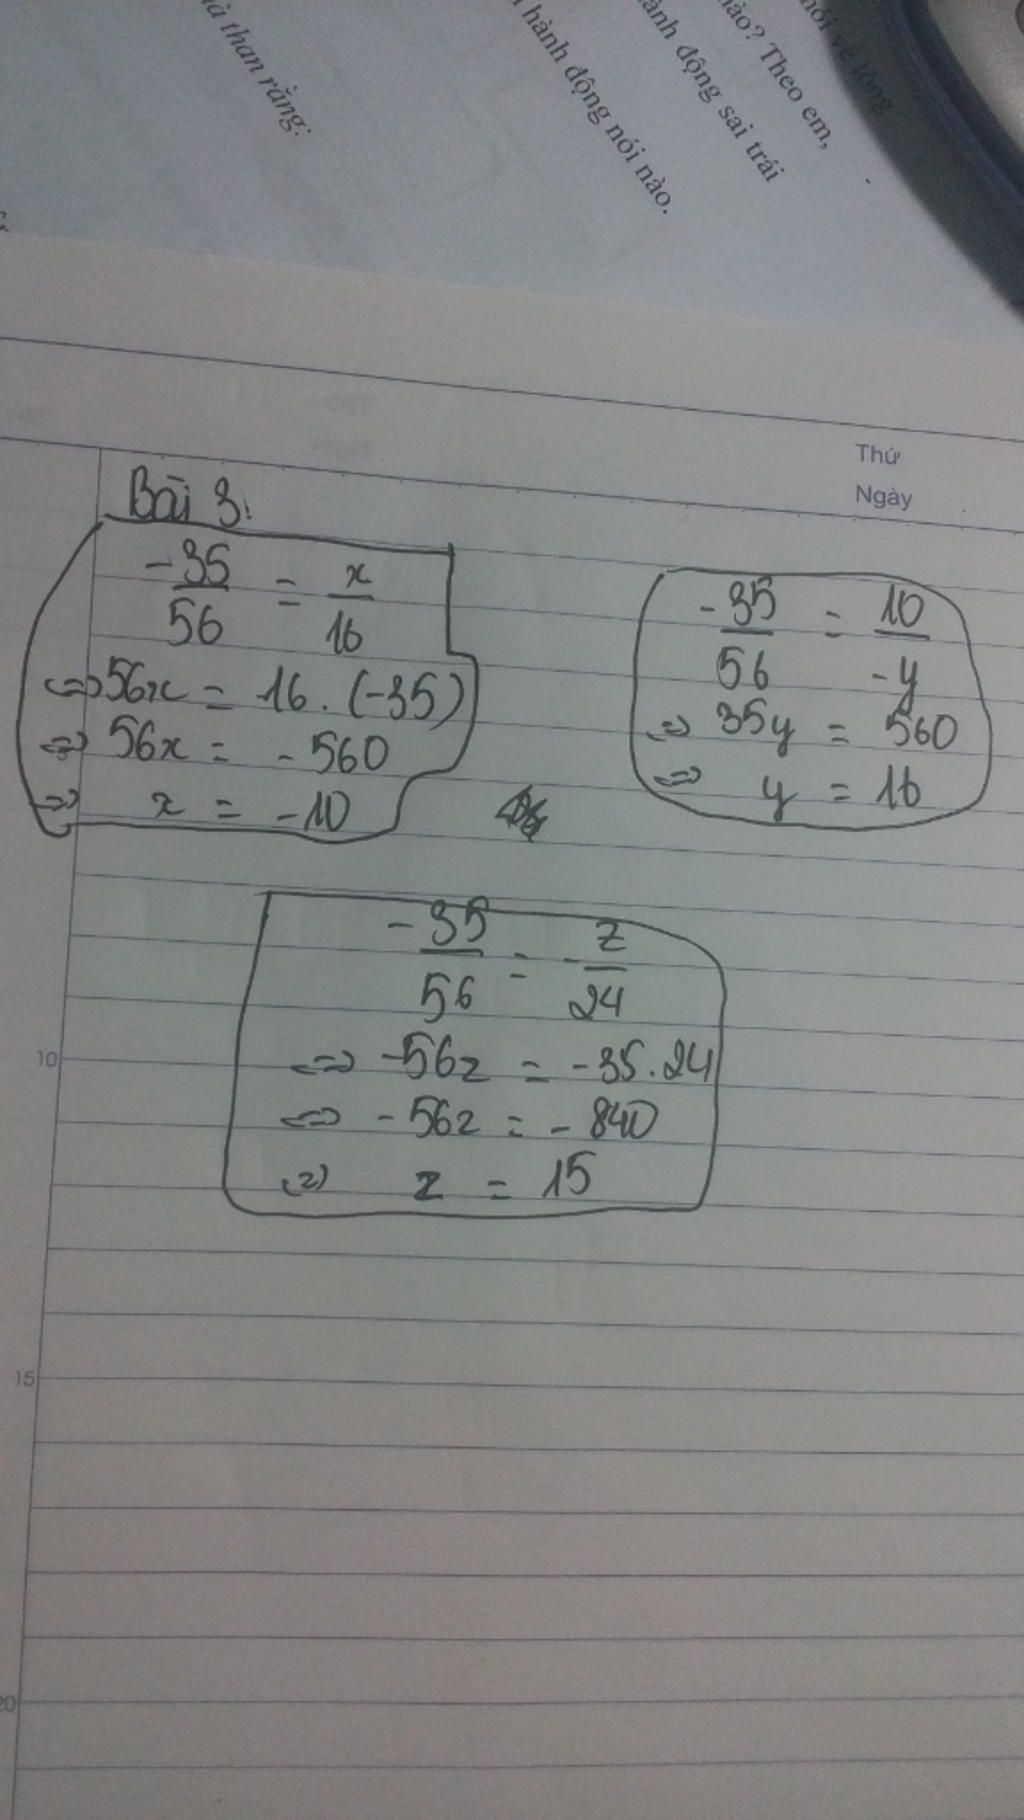 là than rằng:
hành động nói nào.
ành động sai trái
nào? Theo em,
nói về lòng
Thứ
Ngày
Bài 3:
-35/56 = x/16
<=> 56x = 16 . (-35)
<=> 56x = - 560
<=> x = -10
-35/56 = 10/-y
=> 35y = 560
<=> y = 16
-35/56 = -z/24
<=> -56z = -35.24
<=> -56z = - 840
<=> z = 15
10
15
20